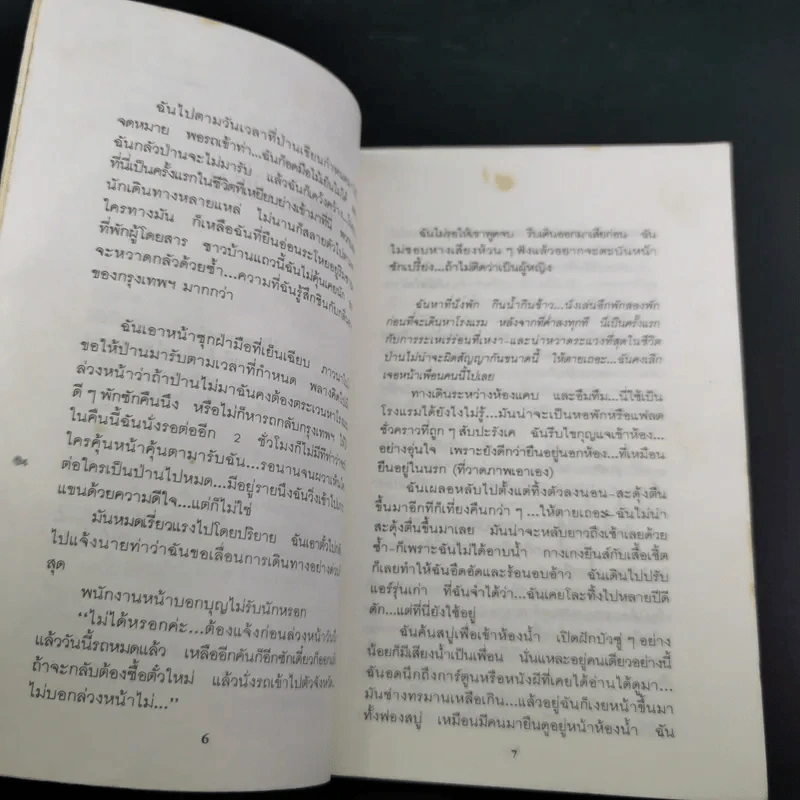 ฉันไปตามวันเวลาที่ป่านเขียนกำหนด
จดหมาย พอรถเข้าท่า...ฉันก็อดมือไม้เย็นไม่ได้
ฉันกลัวป่านจะไม่มารับ แล้วฉันก็คว้างคว้าง
ที่นี่เป็นครั้งแรกในชีวิตที่เหยียบย่างเข้ามาที่นี่
นักเดินทางหลายแหล่ ไม่นานก็สลายตัวไป
ใครทางมัน ก็เหลือฉันที่ยืนอ่อนระโหยอยู่
ที่พักผู้โดยสาร ชาวบ้านแถวนี้ฉันไม่คุ้นเคยนัก
จะหวาดกลัวด้วยซ้ำ...ความที่ฉันรู้สึกชินกับ
ของกรุงเทพฯ มากกว่า
ฉันเอาหน้าซุกฝ่ามือที่เย็นเฉียบ ภาวนา
ขอให้ป่านมารับตามเวลาที่กำหนด พลางคิด
ล่วงหน้าว่าถ้าป่านไม่มาฉันคงต้องตระเวนหา
ดี ๆ พักซักคืนนึง หรือไม่ก็หารถกลับกรุงเทพฯ
ในคืนนี้ฉันนั่งรอต่ออีก 2 ชั่วโมงก็ไม่มีที่ท่าว่า
ใครคุ้นหน้าคุ้นตามารับฉัน...รอนานจนผวาเห็น
ต่อใครเป็นป่านไปหมด...มีอยู่รายนึงฉันวิ่งเข้าไป
แขนด้วยความดีใจ...แต่ก็ไม่ใช่
มันหมดเรี่ยวแรงไปโดยปริยาย ฉันเอาตั๋ว
ไปแจ้งนายท่าว่าฉันขอเลื่อนการเดินทางอย่าง
สุด
พนักงานหน้าบอกบุญไม่รับนักหรอก
“ไม่ได้หรอกค่ะ...ต้องแจ้งก่อนล่วงหน้า
แล้ววันนี้รถหมดแล้ว เหลืออีกคันก็อีกซักเดี๋ยวก็ออก
ถ้าจะกลับต้องซื้อตั๋วใหม่ แล้วนั่งรถเข้าไปตัวจังหวัด
ไม่บอกล่วงหน้าไม่...”
6
ฉันไม่รอให้เขาพูดจบ รีบเดินออกมาเสียก่อน ฉัน
ไม่ชอบหางเสียงห้วน ๆ ฟังแล้วอยากจะตะบันหน้า
ซักเปรี้ยง...ถ้าไม่ติดว่าเป็นผู้หญิง
ฉันหาที่นั่งพัก กินน้ำกินข้าว...นั่งเล่นอีกพักสองพัก
ก่อนที่จะเดินหาโรงแรม หลังจากที่ค่ำลงทุกที นี่เป็นครั้งแรก
กับการระเหเร่ร่อนที่เหงา-และน่าหวาดระแวงที่สุดในชีวิต
ป่านไม่น่าจะผิดสัญญากันขนาดนี้ ให้ตายเถอะ...ฉันคงเลิก
เจอหน้าเพื่อนคนนี้ไปเลย
ทางเดินระหว่างห้องแคบ และอึมทึม...นี่ใช้เป็น
โรงแรมได้ยังไงไม่รู้...มันน่าจะเป็นหอพักหรือแฟลต
ชั่วคราวที่ถูก ๆ สัปะรังเค ฉันรีบไขกุญแจเข้าห้อง...
อย่างอุ่นใจ เพราะยังดีกว่ายืนอยู่นอกห้อง...ที่เหมือน
ยืนอยู่ในนรก (ที่วาดภาพเอาเอง)
ฉันเผลอหลับไปตั้งแต่ทิ้งตัวลงนอน-สะดุ้งตื่น
ขึ้นมาอีกทีก็เที่ยงคืนกว่า ๆ ...ให้ตายเถอะ-ฉันไม่น่า
สะดุ้งตื่นขึ้นมาเลย มันน่าจะหลับยาวถึงเช้าเลยด้วย
ซ้ำ-ก็เพราะฉันไม่ได้อาบน้ำ กางเกงยีนส์กับเสื้อเชิ้ต
ก็เลยทำให้ฉันอึดอัดและร้อนอบอ้าว ฉันเดินไปปรับ
แอร์รุ่นเก่า ที่ฉันจำได้ว่า...ฉันเคยโละทิ้งไปหลายปีดี
ดัก...แต่ที่นี่ยังใช้อยู่
ฉันค้นสบู่เพื่อเข้าห้องน้ำ เปิดฝักบัวซู่ ๆ อย่าง
น้อยก็มีเสียงน้ำเป็นเพื่อน นั่นแหละอยู่คนเดียวอย่างนี้
ฉันอดนึกถึงการ์ตูนหรือหนังผีที่เคยได้อ่านได้ดูมา...
มันช่างทรมานเหลือเกิน...แล้วอยู่ฉันก็เงยหน้าขึ้นมา
ทั้งฟองสบู่ เหมือนมีคนมายืนดูอยู่หน้าห้องน้ำ ฉัน
7